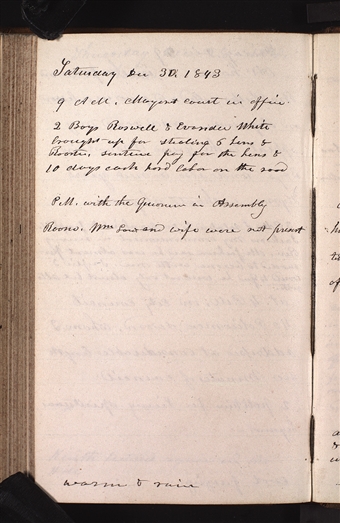 Saturday Dec 30. 1843
9 A.M. Mayors court in office.
2 Boys Roswell & Evander White
brought up for stealing 6 hens &
Rooster, sentence pay for the hens &
10 days each hard labor on the road
P.M. with the Quorum in Assembly
Room. Wm Law and wife were not present
warm & rain